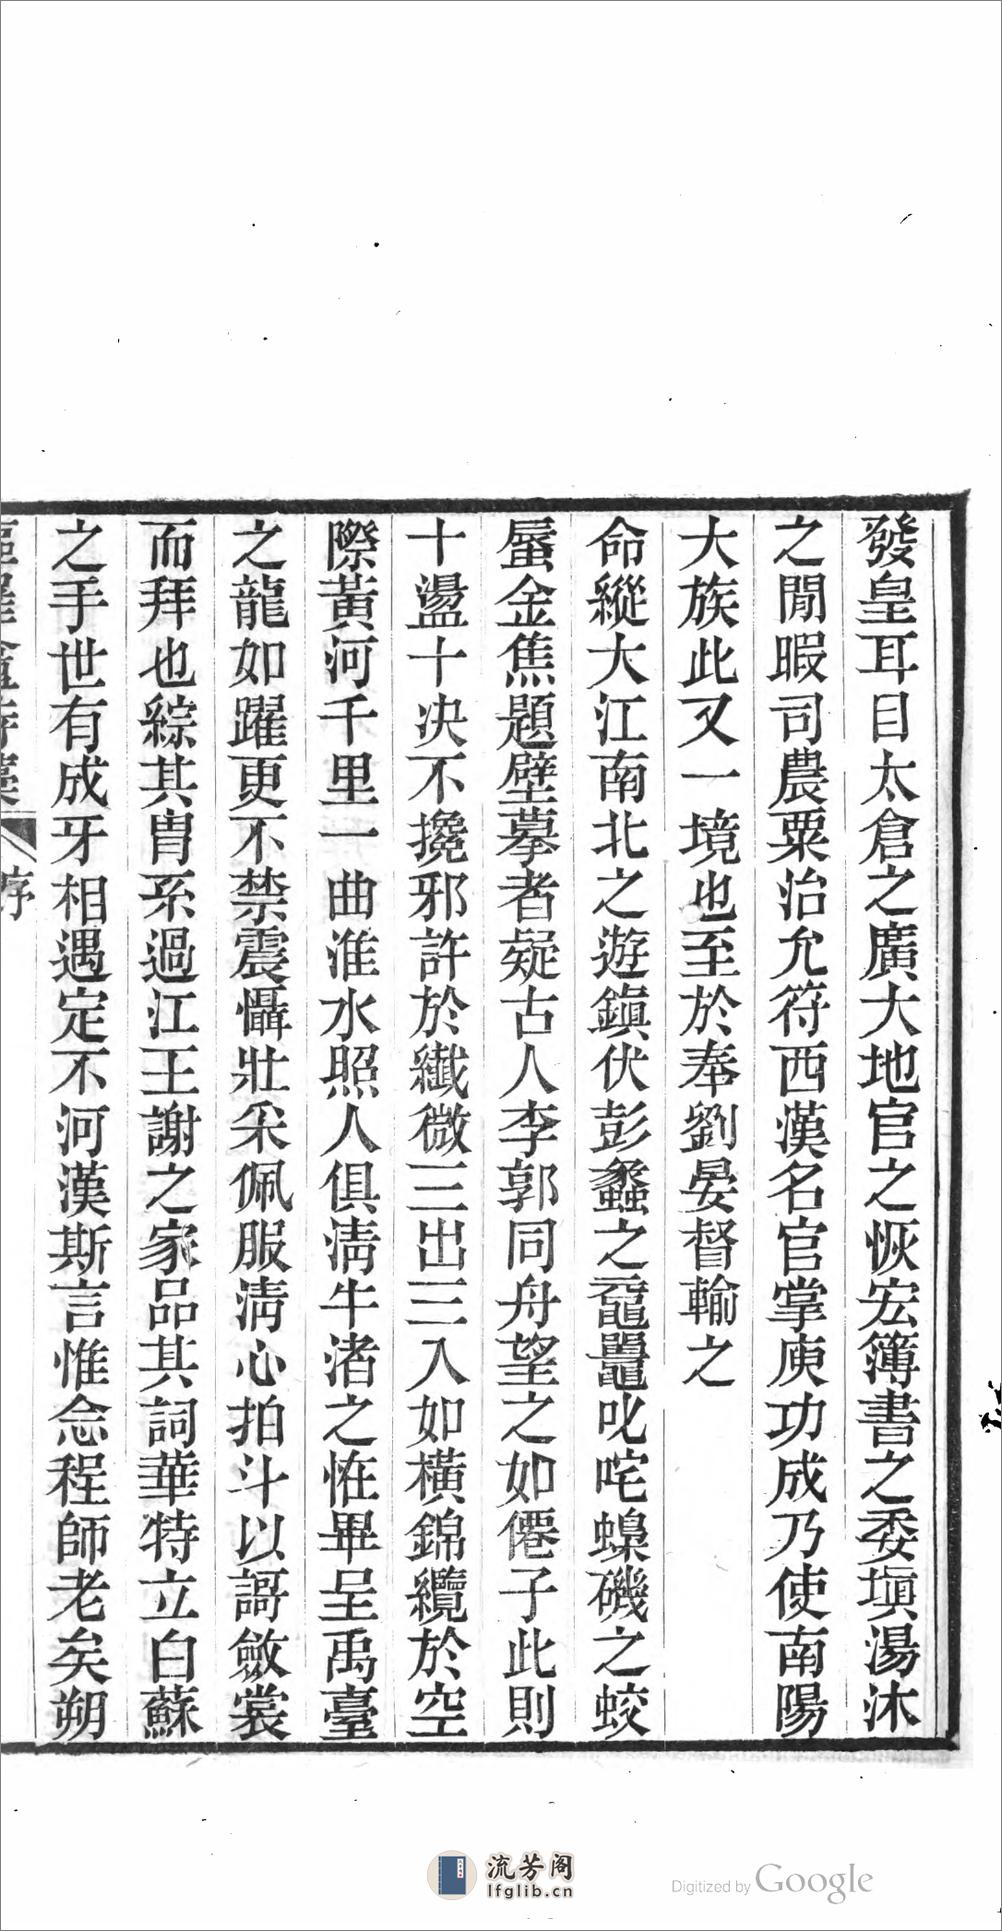 發皇耳目太倉之廣大地官之恢宏簿書之委塡湯沐
之閒暇司農粟治允符西漢名官掌庾功成乃使南陽
大族此又一境也至於奉劉晏督輸之
命縱大江南北之遊鎭伏彭蠡之黿鼉叱咤蟂磯之蛟
蜃金焦題壁摹者疑古人李郭同舟望之如僊子此則
十盪十决不攙邪許於纖微三出三入如橫錦纜於空
際黃河千里一曲淮水照人俱淸牛渚之恠畢呈禹臺
之龍如躍更不禁震懾壯采佩服淸心拍斗以謌斂裳
而拜也綜其胄系過江王謝之家品其詞華特立白蘇
之手世有成牙相遇定不河漢斯言惟念程師老矣朔
序
流芳阁
lfglib.cn
Digitized by Google